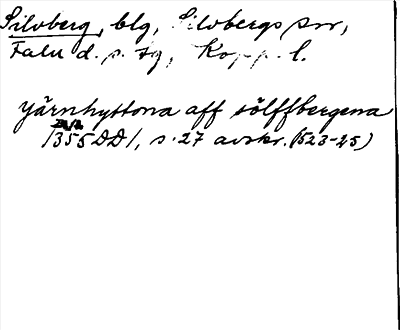 Silvberg, blg, Silvbergs sn,
Falu d. s. tg, Kopp. l.
yärnhyttona aff sölffbergena
21/2
1355 DD 1, s. 27 avskr. (1523-25)